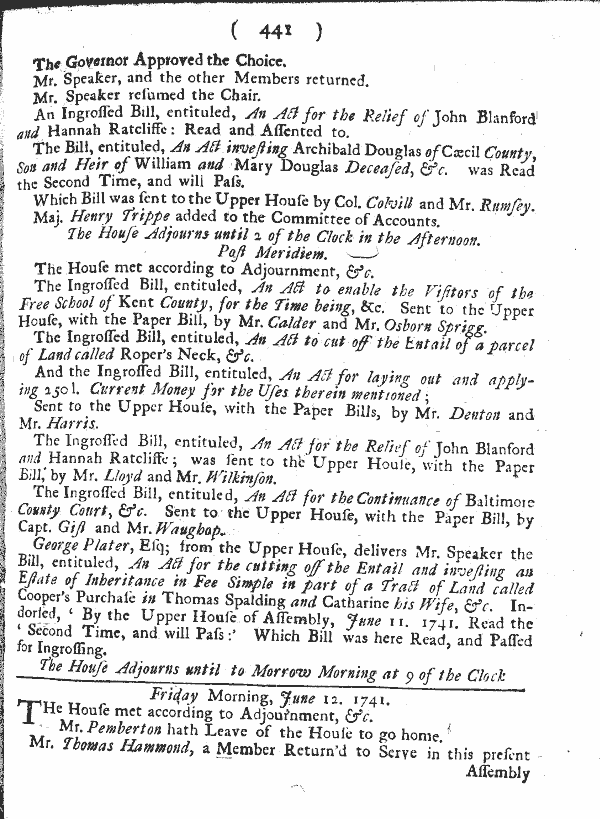 ( 441 )
The Governor Approved the Choice.
Mr. Speaker, and the other Members returned.
Mr. Speaker reſumed the Chair.
An Ingroſſed Bill, entituled, An Act for the Relief of John Blanford
and Hannah Ratcliffe: Read and Aſſented to.
The Bill, entituled, An Act inveſting Archibald Douglas of Cæcil County,
Son and Heir of William and Mary Douglas Deceaſed, &c. was Read
the Second Time, and will Paſs.
Which Bill was ſent to the Upper Houſe by Col. Colvill and Mr. Rumſey.
Maj. Henry Trippe added to the Committee of Accounts.
The Houſe Adjourns until 2 of the Clock in the Afternoon.
Poſt Meridiem.
The Houſe met according to Adjournment, &c.
The Ingroſſed Bill, entituled, An Act to enable the Viſitors of the
Free School of Kent County, for the Time being, &c. Sent to the Upper
Houſe, with the Paper Bill, by Mr. Calder and Mr. Osborn Sprigg.
The Ingroſſed Bill, entituled, An Act to cut off the Entail of a parcel
of Land called Roper's Neck, &c.
And the Ingroſſed Bill, entituled, An Act for laying out and apply-
ing 250 l. Current Money for the Uſes therein mentioned;
Sent to the Upper Houſe, with the Paper Bills, by Mr. Denton and
Mr. Harris.
The Ingroſſed Bill, entituled, An Act for the Relief of John Blanford
and Hannah Ratcliffe; was ſent to the Upper Houſe, with the Paper
Bill, by Mr. Lloyd and Mr. Wilkinſon.
The Ingroſſed Bill, entituled, An Act for the Continuance of Baltimore
County Court, &c. Sent to the Upper Houſe, with the Paper Bill, by
Capt. Giſt and Mr. Waughop.
George Plater, Eſq; from the Upper Houſe, delivers Mr. Speaker the
Bill, entituled, An Act for the cutting off the Entail and inveſting an
Eſtate of Inheritance in Fee Simple in part of a Tract of Land called
Cooper's Purchaſe in Thomas Spalding and Catharine his Wife, &c. In-
dorſed, ‘ By the Upper Houſe of Aſſembly, June 11. 1741. Read the
‘ Second Time, and will Paſs:’ Which Bill was here Read, and Paſſed
for Ingroſſing.
The Houſe Adjourns until to Morrow Morning at 9 of the Clock
Friday Morning, June 12. 1741.
THe Houſe met according to Adjournment, &c.
Mr. Pemberton hath Leave of the Houſe to go home.
Mr. Thomas Hammond, a Member Return'd to Serve in this preſent
Aſſembly